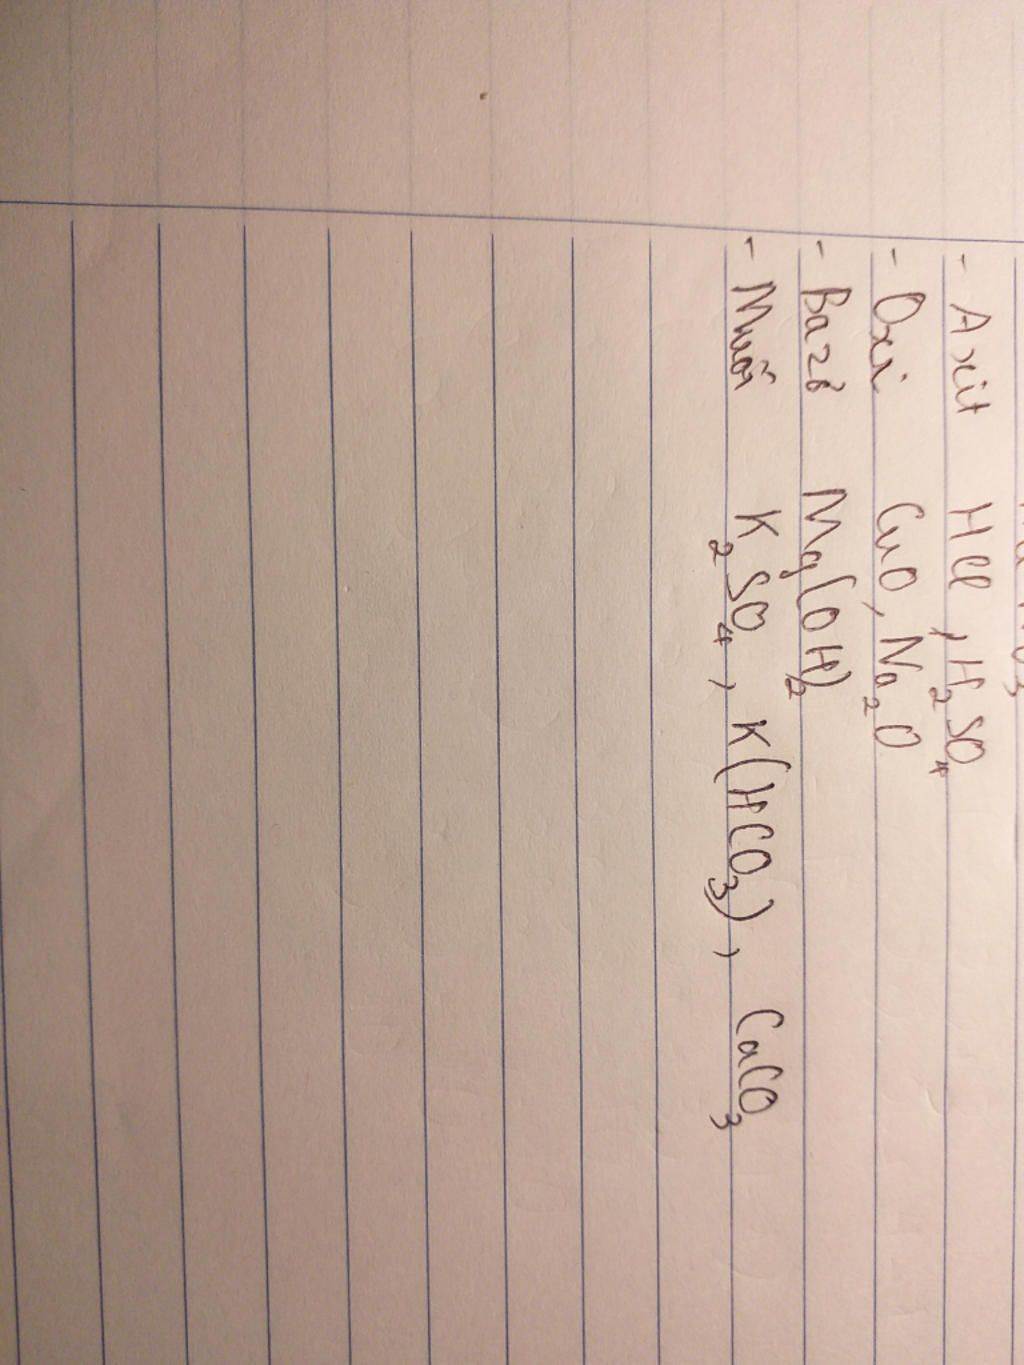 - Axit HCl, H₂SO₄
- Oxi CuO, Na₂O
- Bazơ Mg(OH)₂
- Muối K₂SO₄, K(HCO₃), CaCO₃